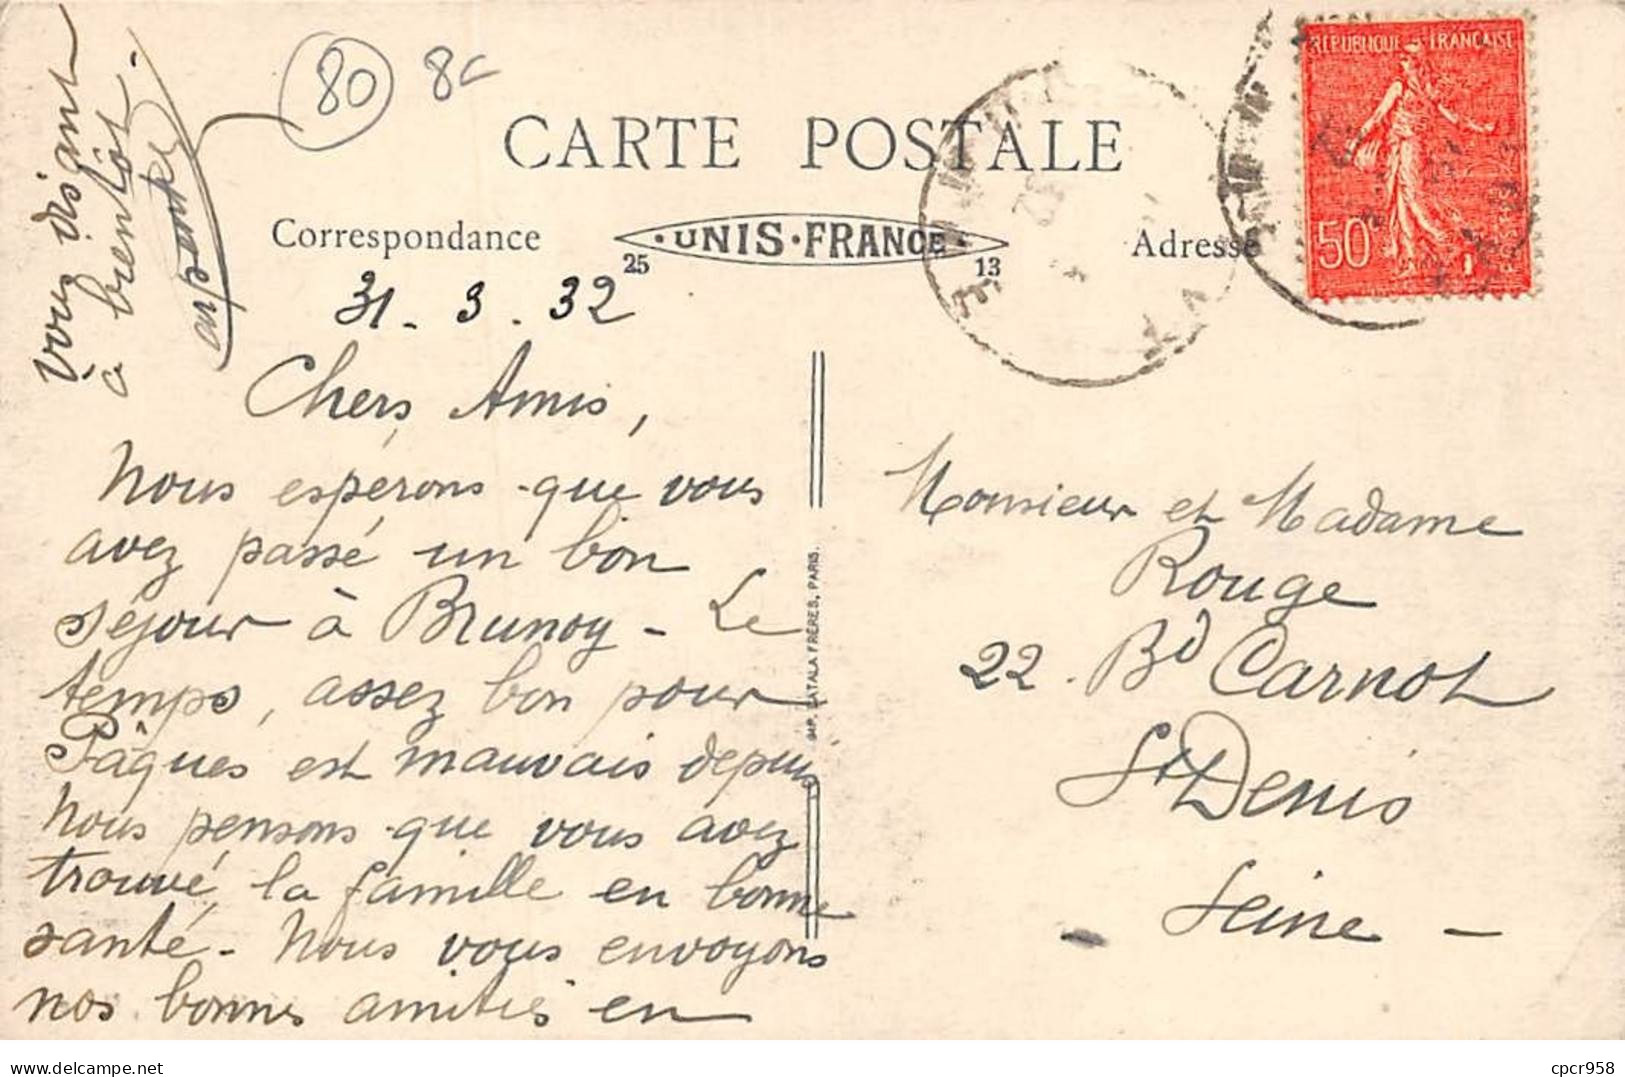 80
8c
CARTE POSTALE
RÉPUBLIQUE FRANÇAISE
50
Correspondance
UNIS·FRANCE
25
13
Adresse
31 . 3 . 32
Chers Amis,
Nous espérons que vous
avez passé un bon
séjour à Brunoy - Le
temps, assez bon pour
Pâques est mauvais depuis
Nous pensons que vous avez
trouvé la famille en bonne
santé - Nous vous envoyons
nos bonnes amitiés en
vous disant
à bientôt.
IMP. CATALA FRÈRES, PARIS.
Monsieur et Madame
Rouge
22. Bd Carnot
St Denis
- Seine -
delcampe.net
cpcr958